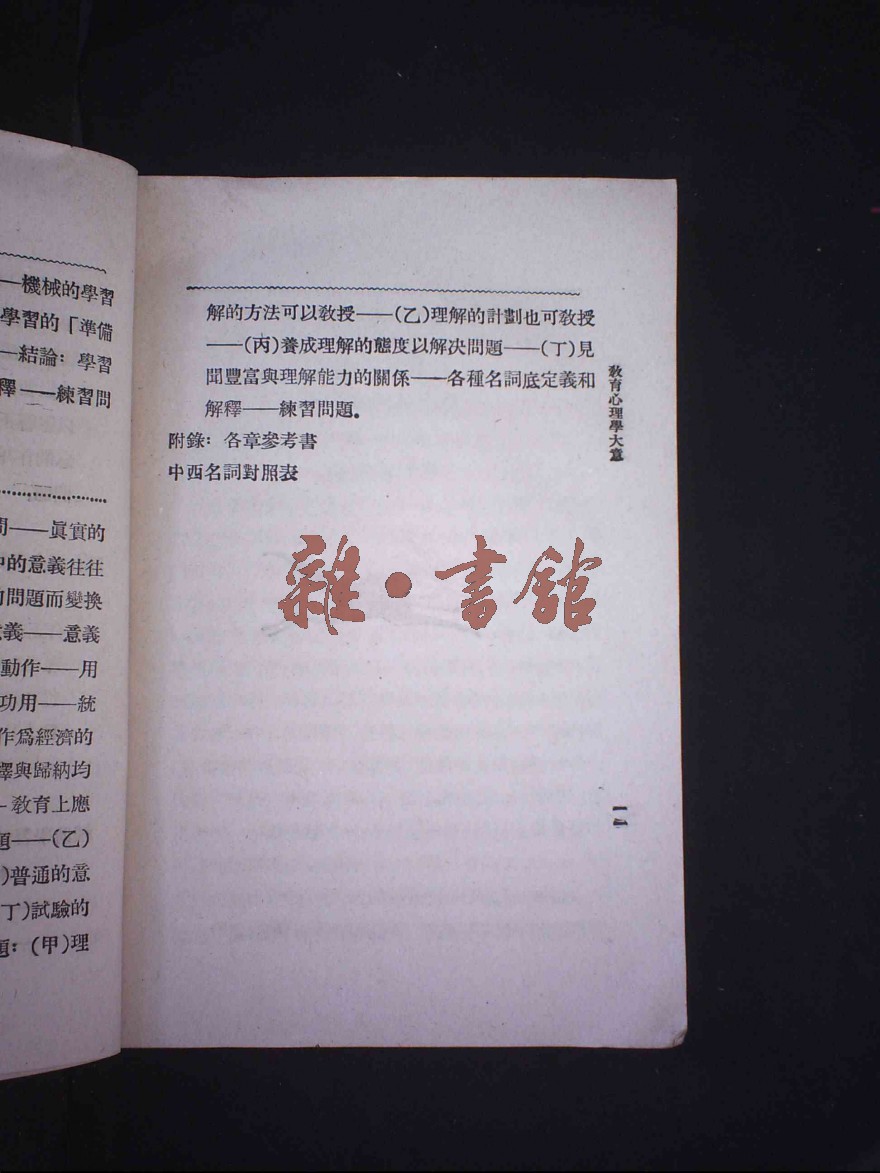 機械的學習
學習的「準備
結論：學習
釋——練習問
——眞實的
的意義往往
問題而變換
義——意義
動作——用
功用——統
作爲經濟的
與歸納均
教育上應
——(乙)
)普通的意
丁)試驗的
(甲)理
解的方法可以敎授——(乙)理解的計劃也可敎授
——(丙)養成理解的態度以解决問題——(丁)見
聞豐富與理解能力的關係——各種名詞底定義和
解釋——練習問題。
附錄：各章參考書
中西名詞對照表
敎育心理學大意
一二
雜·書館